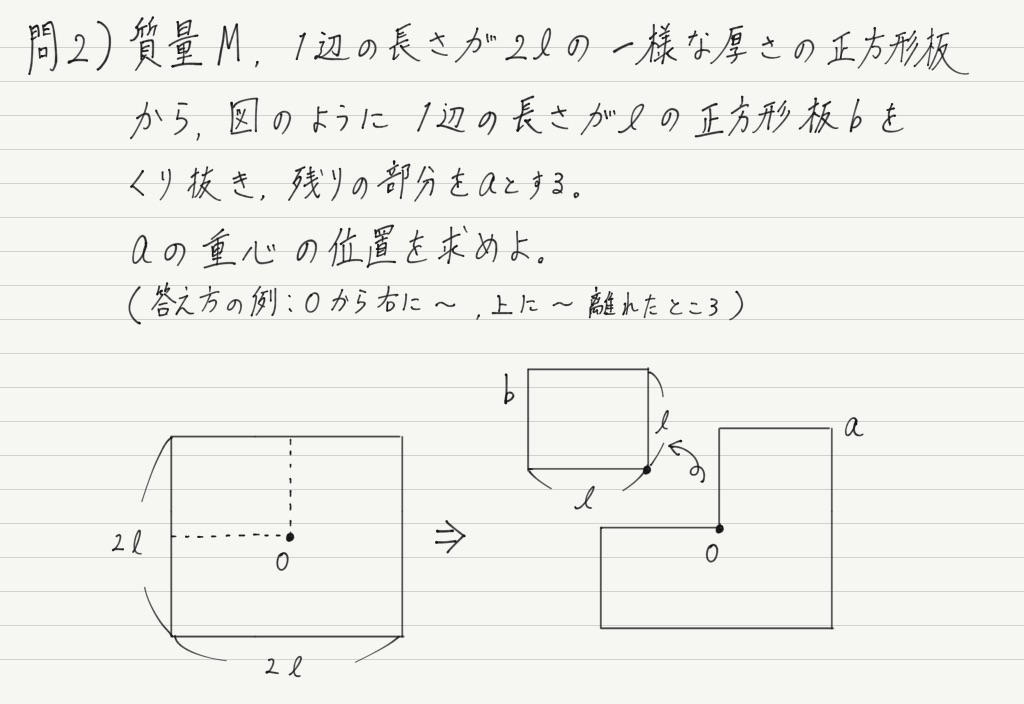 問2) 質量M, 1辺の長さが2lの一様な厚さの正方形板
から, 図のように1辺の長さがlの正方形板bを
くり抜き, 残りの部分をaとする。
aの重心の位置を求めよ。
(答え方の例:Oから右に〜, 上に〜離れたところ)
b
l
l
a
O
2l
O
2l
⇒